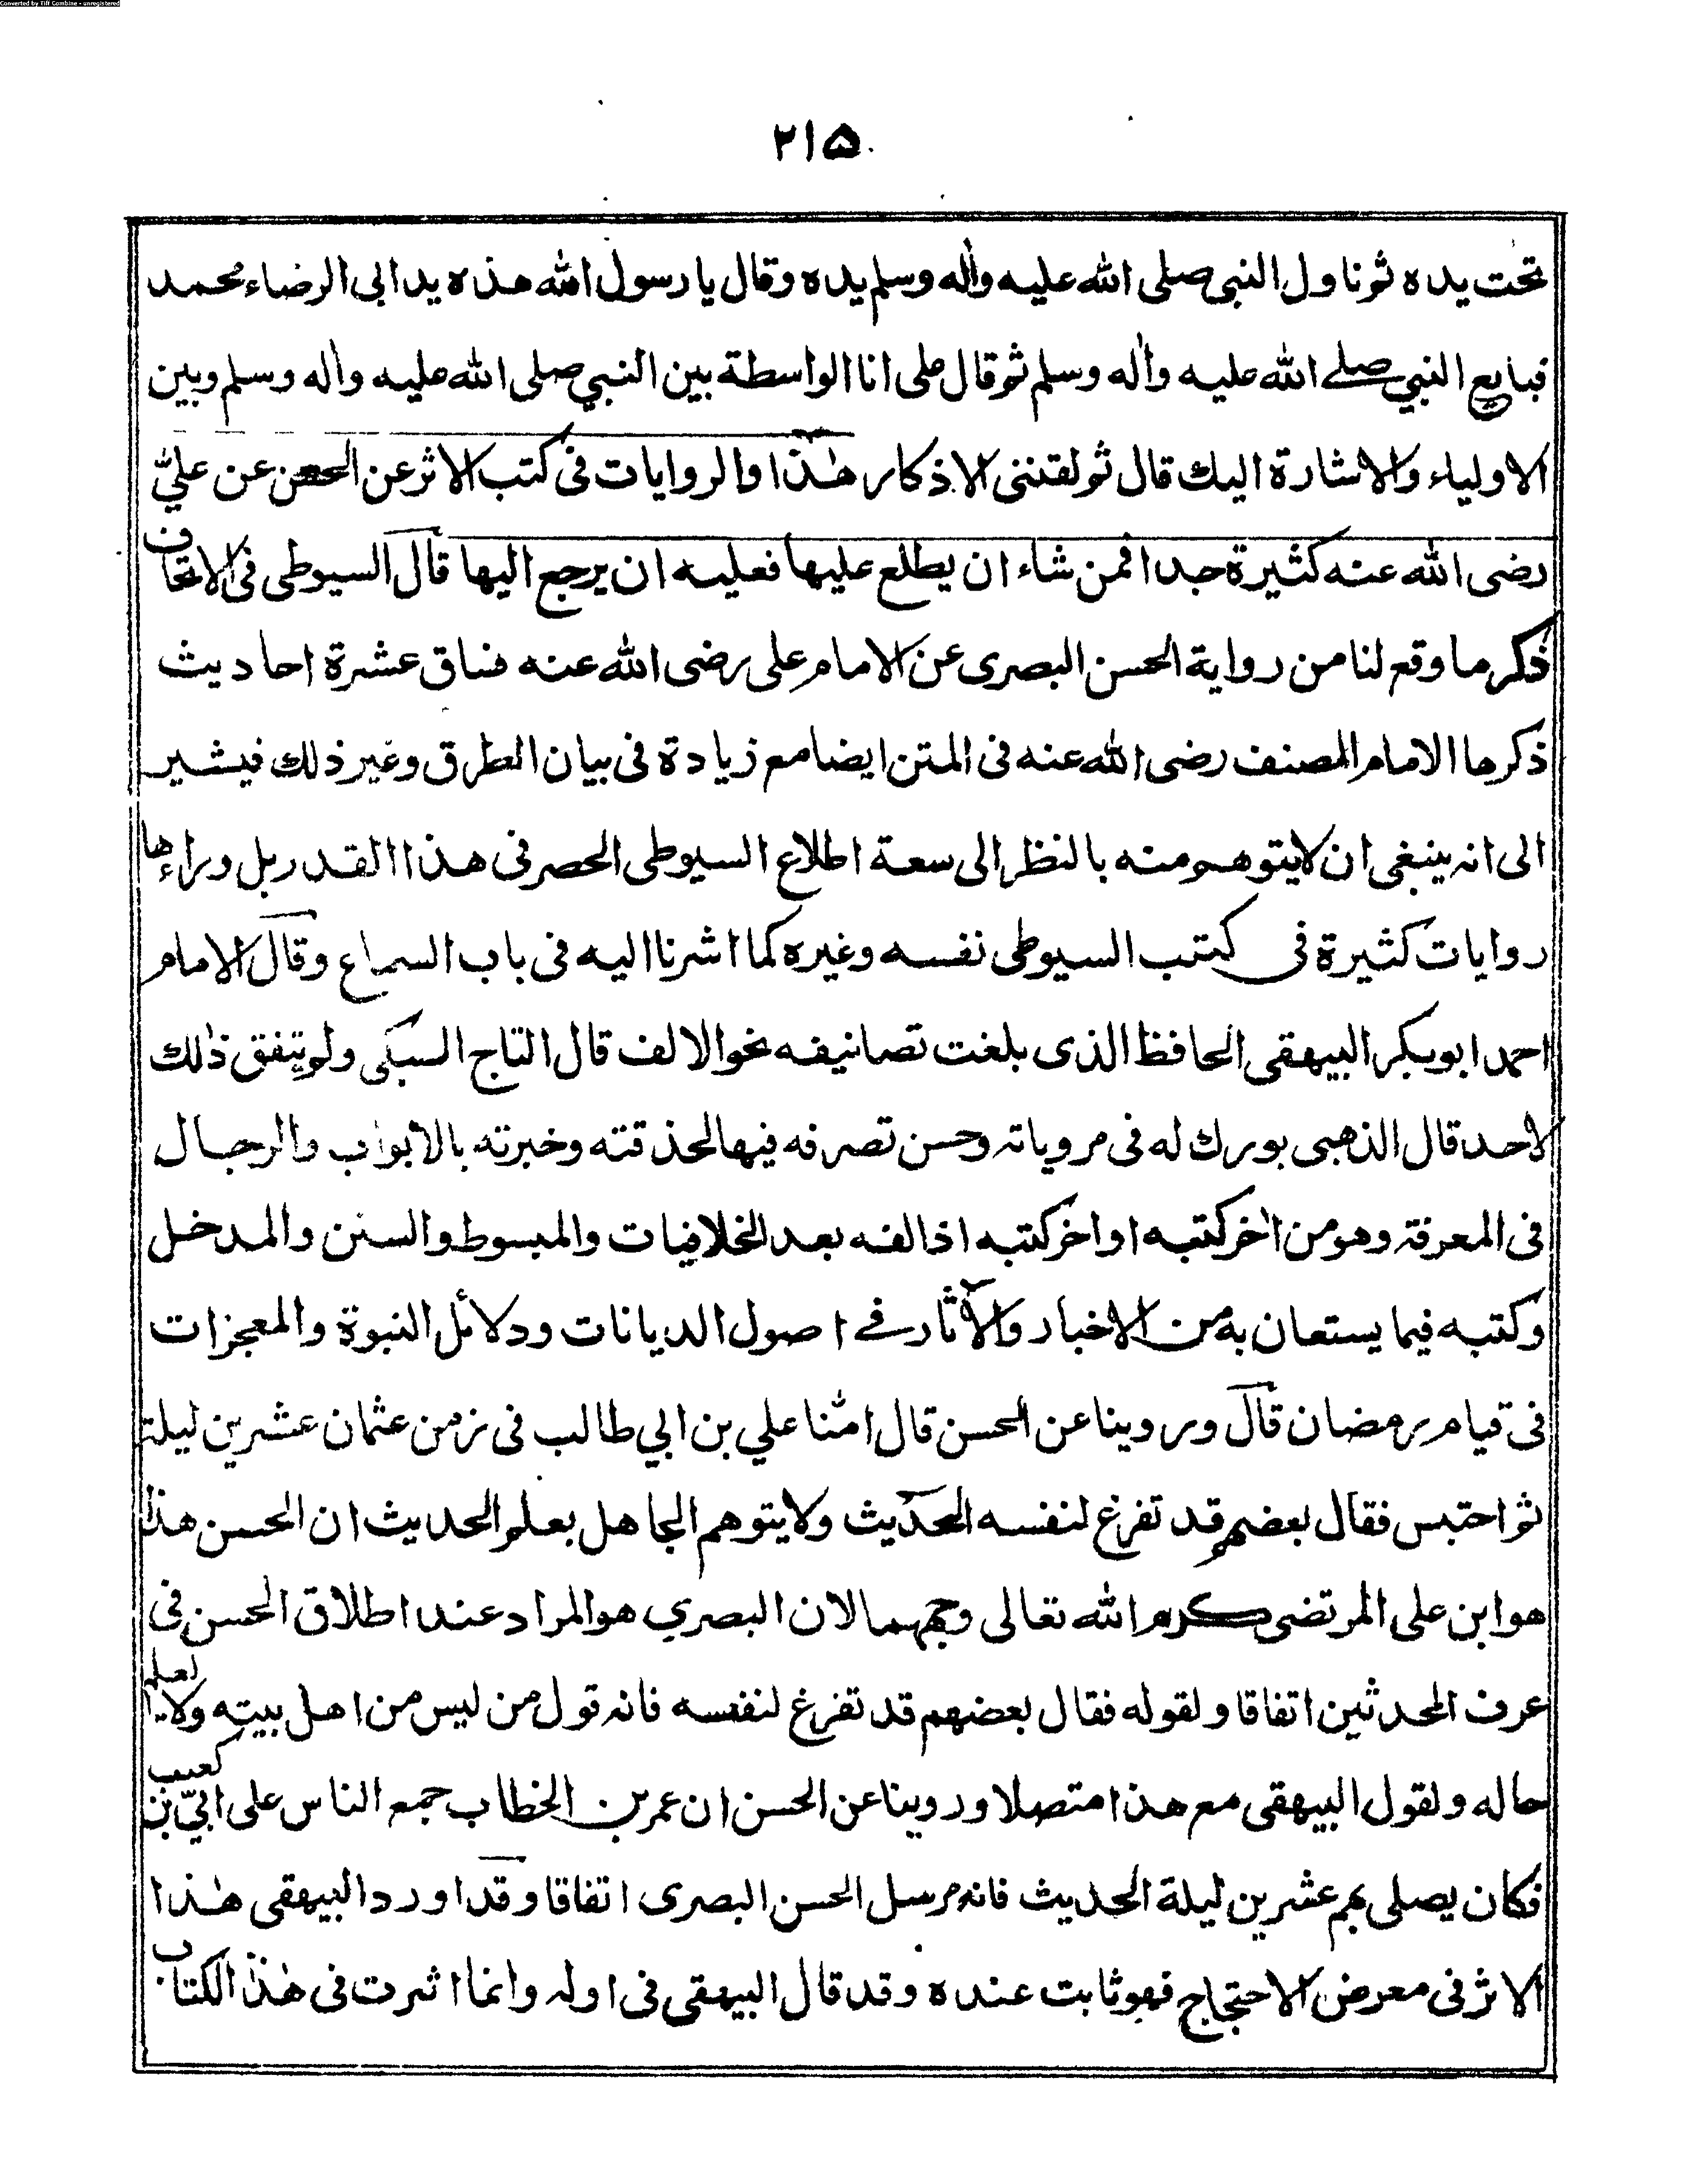 Converted by Tiff Combine - unregistered
٢١٥
تحت يده ثم ناول النبي صلى الله عليه وأله وسلم يده وقال يا رسول الله هذه يد ابى الرضاء محمد
فبايع النبي صلے الله عليه وأله وسلم ثم قال على انا الواسطة بين النبي صلى الله عليه واله وسلم وبين
الاولياء والاشارة اليك قال ثم لقننى الاذكار هٰذا والروايات فى كتب الاثر عن الحسن عن عليّ
رضى الله عنه كثيرة جدا فمن شاء ان يطلع عليها فعليه ان يرجع اليها قال السيوطى فى الاتحاف
ذكر ما وقع لنا من رواية الحسن البصرى عن الامام على رضى الله عنه فساق عشرة احاديث
ذكرها الامام المصنف رضى الله عنه فى المتن ايضا مع زيادة فى بيان الطرق وغير ذلك فيشير
الى انه ينبغى ان لا يتوهم منه بالنظر الى سعة اطلاع السيوطى الحصر فى هذا القدر بل وراءها
روايات كثيرة فى كتب السيوطى نفسه وغيره كما اشرنا اليه فى باب السماع وقال الامام
احمد ابو بكر البيهقى الحافظ الذى بلغت تصانيفه نحو الالف قال التاج السبكى ولم يتفق ذلك
لاحد قال الذهبى بورك له فى مروياته وحسن تصرفه فيها لحذقته وخبرته بالابواب والرجال
فى المعرفة وهو من اٰخر كتبه او اخر كتبه اذ الفه بعد الخلافيات والمبسوط والسنن والمدخل
وكتبه فيما يستعان به من الاخبار والآثار فے اصول الديانات ودلائل النبوة والمعجزات
فى قيام رمضان قال وروينا عن الحسن قال امّنا علي بن ابي طالب فى زمن عثمان عشرين ليلة
ثم احتبس فقال بعضهم قد تفرغ لنفسه الحديث ولا يتوهم الجاهل بعلم الحديث ان الحسن هذا
هو ابن على المرتضى كرم الله تعالى وجههما لان البصري هو المراد عند اطلاق الحسن فى
عرف المحدثين اتفاقا ولقوله فقال بعضهم قد تفرغ لنفسه فانه قول من ليس من اهل بيته ولا يعلم
حاله ولقول البيهقى مع هذا متصلا وروينا عن الحسن ان عمر بن الخطاب جمع الناس على ابيّ بن كعب
فكان يصلى بهم عشرين ليلة الحديث فانه مرسل الحسن البصرى اتفاقا وقد اورد البيهقى هٰذا
الاثر فى معرض الاحتجاج فهو ثابت عنده وقد قال البيهقى فى اوله وانما اثرت فى هٰذا الكتاب